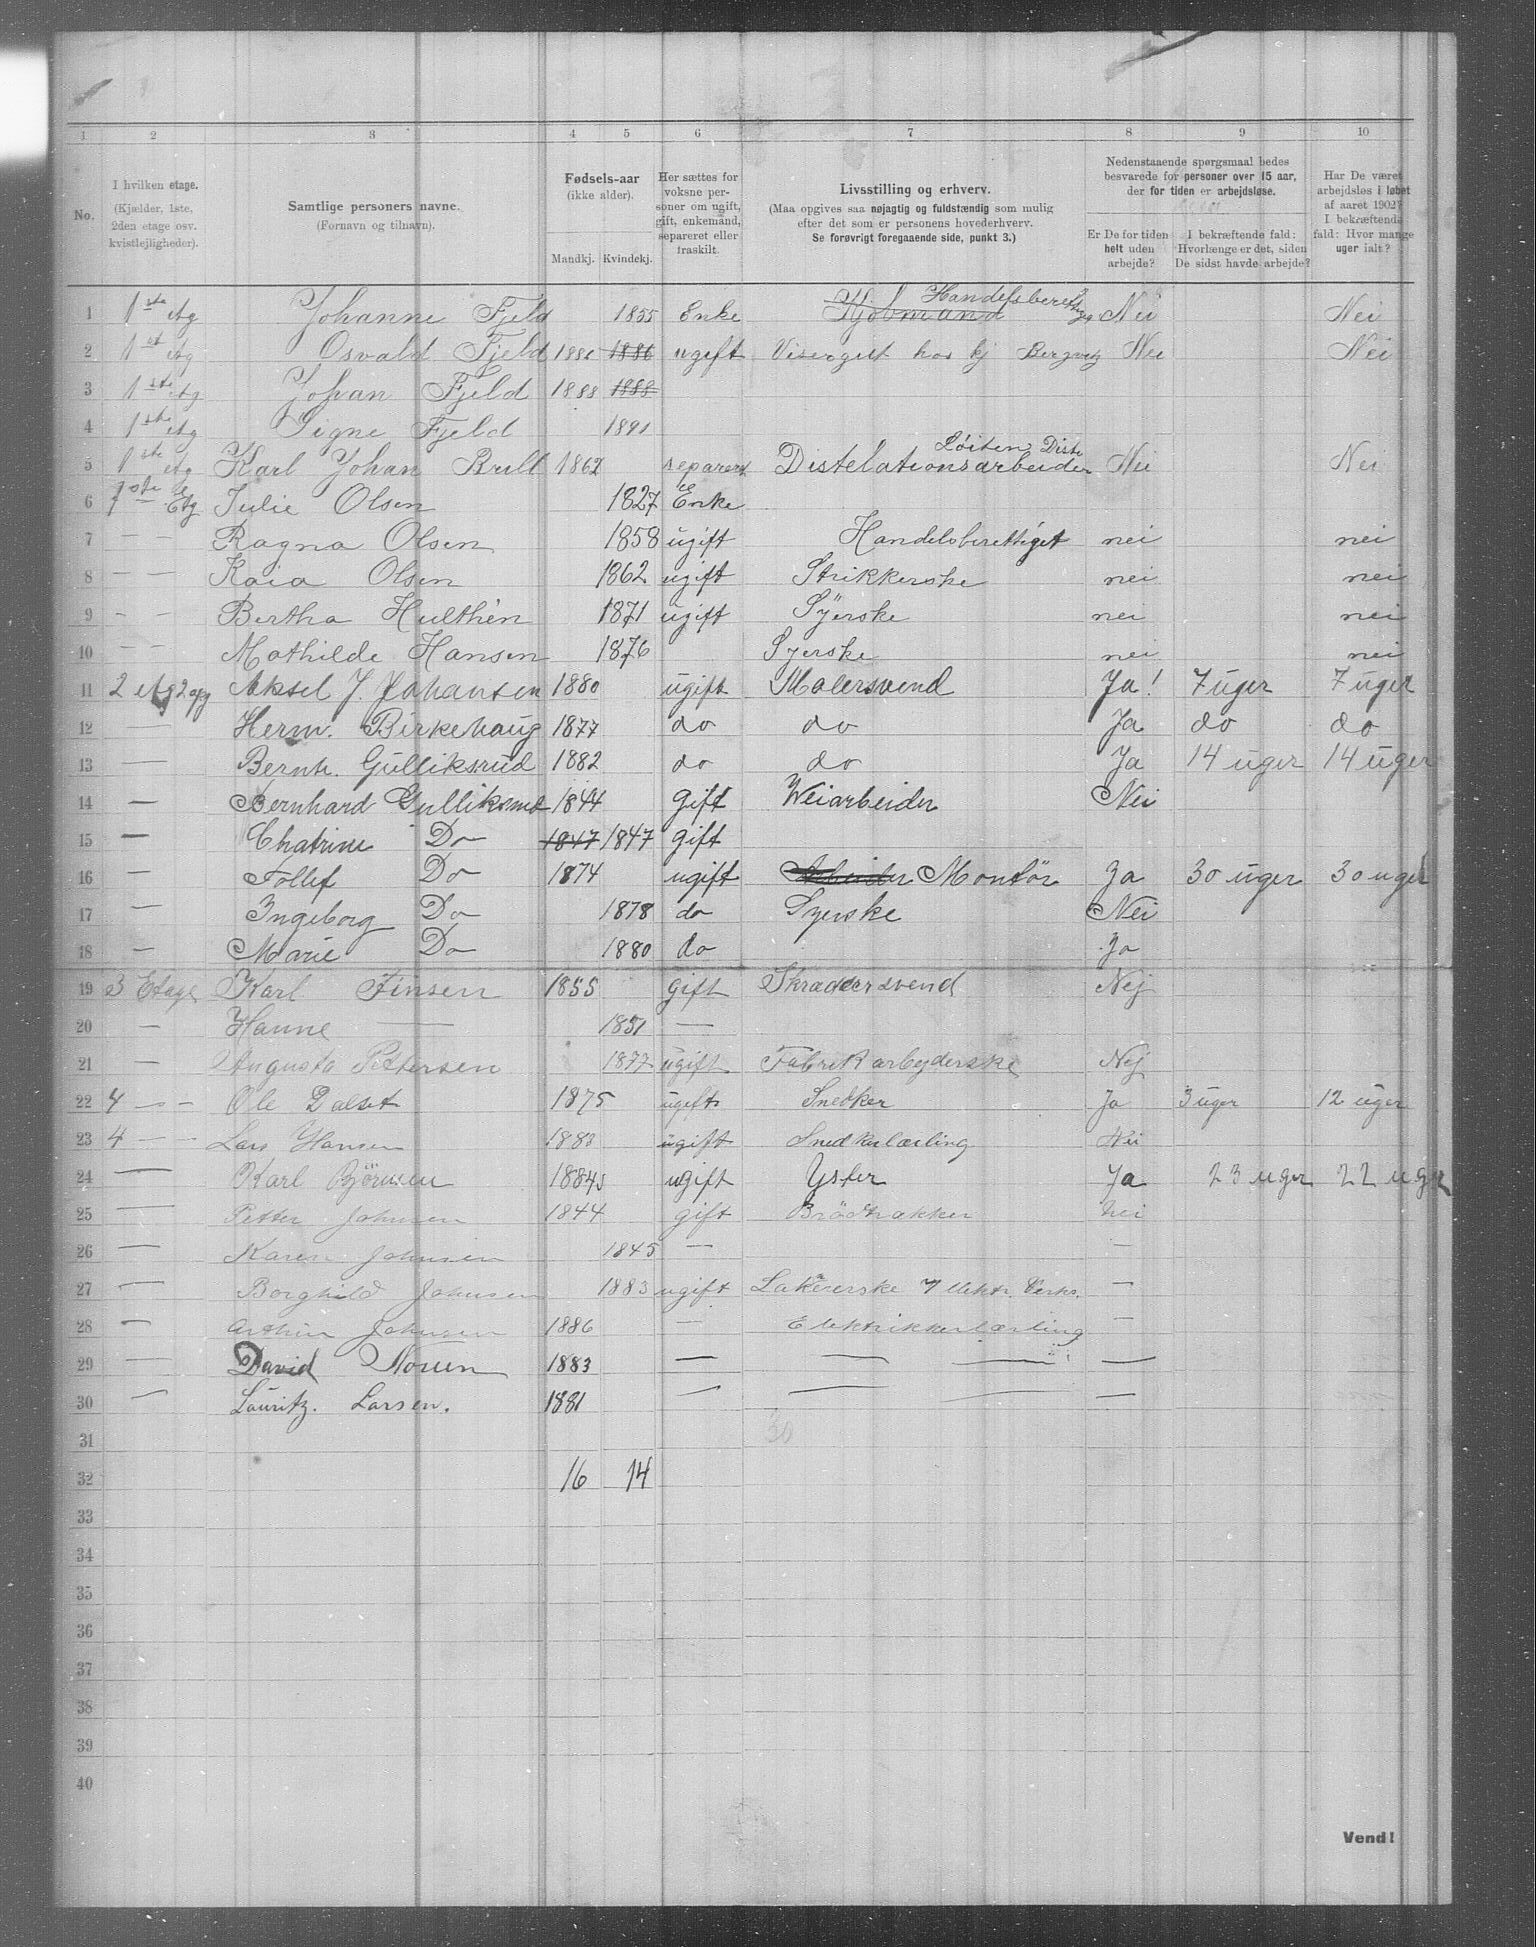 1 2 3 4 5 6 7 8 9 10
No.
I hvilken etage.
(Kjælder, 1ste, 2den etage osv. kvistlejligheder).
Samtlige personers navne.
(Fornavn og tilnavn).
Fødsels-aar
(ikke alder).
Mandkj. Kvindekj.
Her sættes for voksne personer om ugift, gift, enkemand, separeret eller fraskilt.
Livsstilling og erhverv.
(Maa opgives saa nøjagtig og fuldstændig som mulig efter det som er personens hovederhverv.
Se forøvrigt foregaaende side, punkt 3.)
Nedenstaaende spørgsmaal bedes besvarede for personer over 15 aar, der for tiden er arbejdsløse.
Er De for tiden helt uden arbejde?
I bekræftende fald: Hvorlænge er det, siden De sidst havde arbejde?
Har De været arbejdsløs i løbet af aaret 1902? I bekræftende fald: Hvor mange uger ialt?
1 1ste Etg Johanne Fjeld 1855 Enke Kjøbmand Handelsberettiget Nei Nei
2 1st Etg Osvald Fjeld 1886 1886 ugift Visergut hos kj Nei Nei
3 1ste Etg Johan Fjeld 1888 1888
4 1ste Etg Signe Fjeld 1891
5 1ste Etg Karl Johan Brull 1862 separert Distelationsarbeider Løiten Dist. Nei Nei
6 1ste Etg Julie Olsen 1827 Enke
7 — — Ragna Olsen 1858 ugift Handelsberettiget nei nei
8 — — Kaia Olsen 1862 ugift Strikkerske nei nei
9 — — Bertha Hulthèn 1871 ugift Syerske nei nei
10 — — Mathilde Hansen 1876 Syerske nei nei
11 2 etg Aksel J. Johansen 1880 ugift Malersvend Ja! 7 uger 7 uger
12 — Herm. Birkehaug 1877 do do Ja do do
13 — Bernh. Gulliksrud 1882 do do Ja 14 uger 14 uger
14 — Bernhard Gulliksrud 1844 gift Veiarbeider Nei
15 — Chatrine Do 1847 1847 gift
16 — Tollef Do 1874 ugift Arbeider Montör Ja 30 uger 30 uger
17 — Ingeborg Do 1878 do Syerske Nei
18 — Marie Do 1880 do Ja
19 3 Etage Karl Finsen 1855 gift Skrædersvend Nej
20 — Hanne — 1851 —
21 — Augusta Pettersen 1877 ugift Fabrikarbeyderske Nej
22 4 — — Ole Dalset 1875 ugift Snedker Ja 3 uger 12 uger
23 4 — — Lars Hansen 1883 ugift Snedkerlærling Nei
24 — Karl Björnsen 1884 ugift Yster Ja 23 uger 22 uger
25 — Petter Johnsen 1844 gift Brödtrækker nei
26 — Karen Johnsen 1845 — —
27 — Borghild Johnsen 1883 ugift Lakererske Elektr. Verks. —
28 — Arthur Johnsen 1886 — Elektrikkerlærling —
29 — David Noren 1883 — — — —
30 — Lauritz. Larsen. 1881 — — — —
31 30
32 16 14
33
34
35
36
37
38
39
40
Vend!